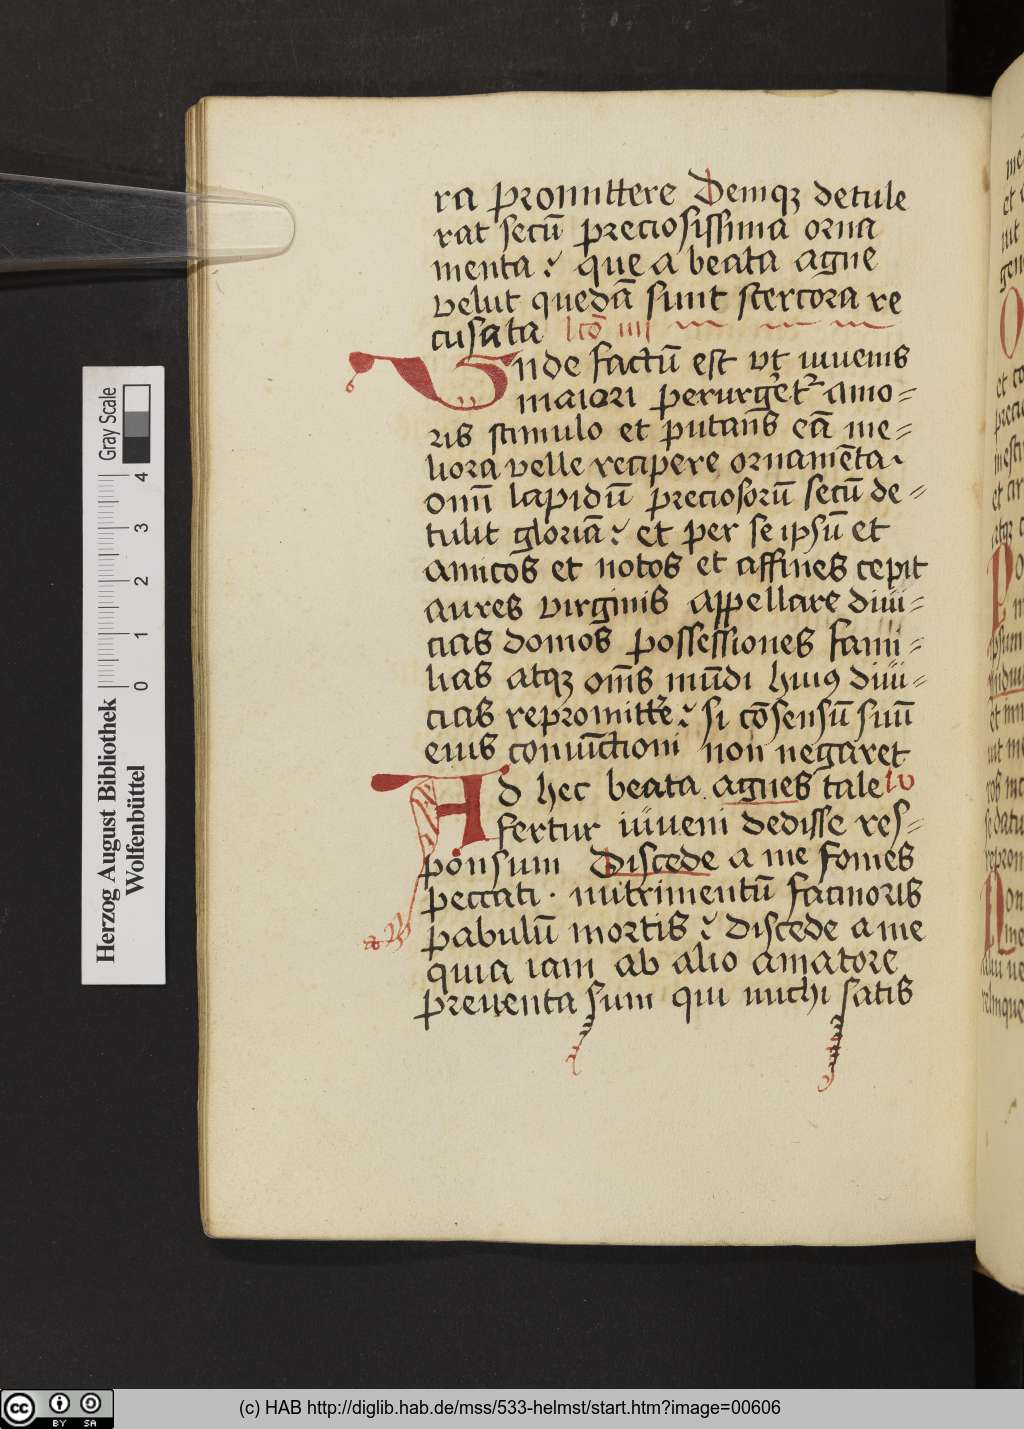 ra promittere Demqꝫ detule
rat secū preciosissima orna
menta que a beata agne
velut quedā sunt stercora re
cusata lcō iiii
Unde factū est vt iuuenis
maiori perurgēt amo-
ris stimulo et putans eā me-
liora velle recipere ornamēta
omī lapidū preciosorū secū de-
tulit gloriā et per se ipsū et
amicos et notos et affines cepit
aures virginis appellare diui-
cias domos possessiones fami-
lias atqꝫ om̄s mūdi huiꝰ diui-
cias repromittēe si cōsensū suū
eius coniūctioni non negaret
Ad hec beata agnes tale
fertur iuueni dedisse res-
ponsum Discede a me fomes
peccati · nutrimentū facinoris
pabulū mortis discede a me
quia iam ab alio amatore
preuenta sum qui michi satis
Herzog August Bibliothek
Wolfenbüttel
Gray Scale
0 1 2 3 4
cc BY SA
(c) HAB http://diglib.hab.de/mss/533-helmst/start.htm?image=00606